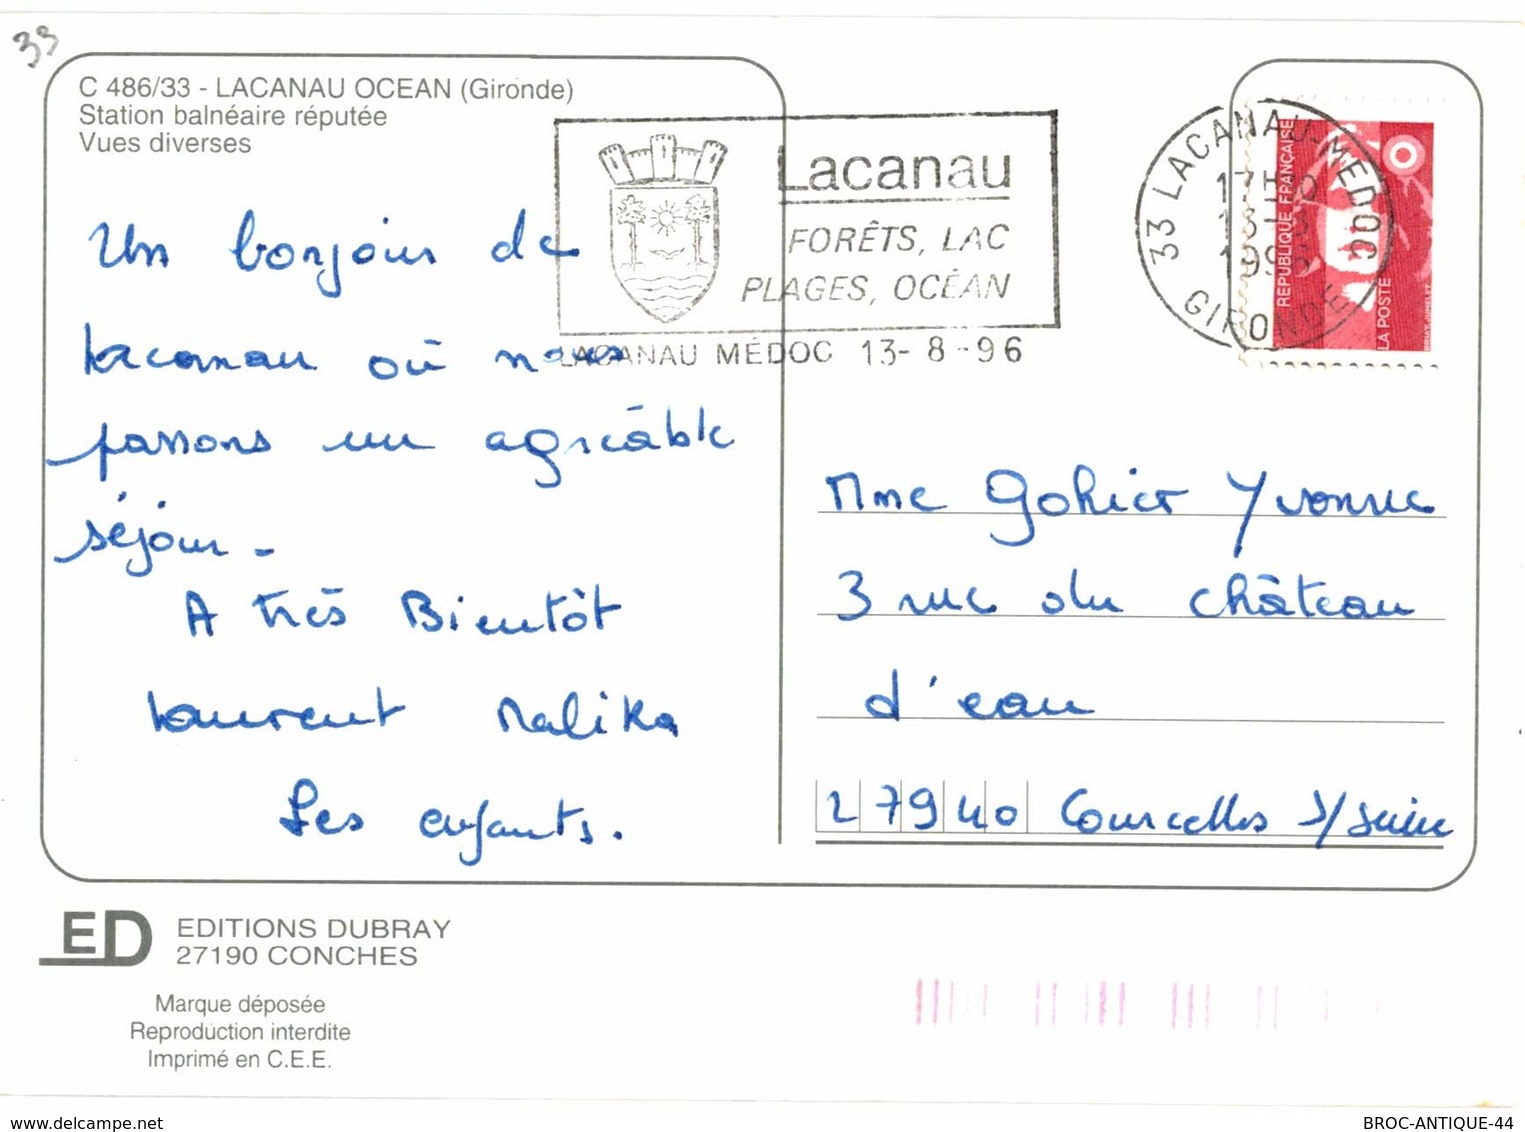 33
C 486/33 - LACANAU OCEAN (Gironde)
Station balnéaire réputée
Vues diverses
Lacanau
FORÊTS, LAC
PLAGES, OCÉAN
LACANAU MÉDOC 13-8-96
33 LACANAU-MEDOC
17H
13-8
1996
GIRONDE
REPUBLIQUE FRANÇAISE
LA POSTE
Un bonjour de
Lacanau où nous
passons un agréable
séjour -
A très Bientôt
Laurent Malika
Les enfants.
Mme Gohier Yvonne
3 rue du château
d'eau
27940 Courcelles s/seine
ED
EDITIONS DUBRAY
27190 CONCHES
Marque déposée
Reproduction interdite
Imprimé en C.E.E.
www.delcampe.net
BROC-ANTIQUE-44